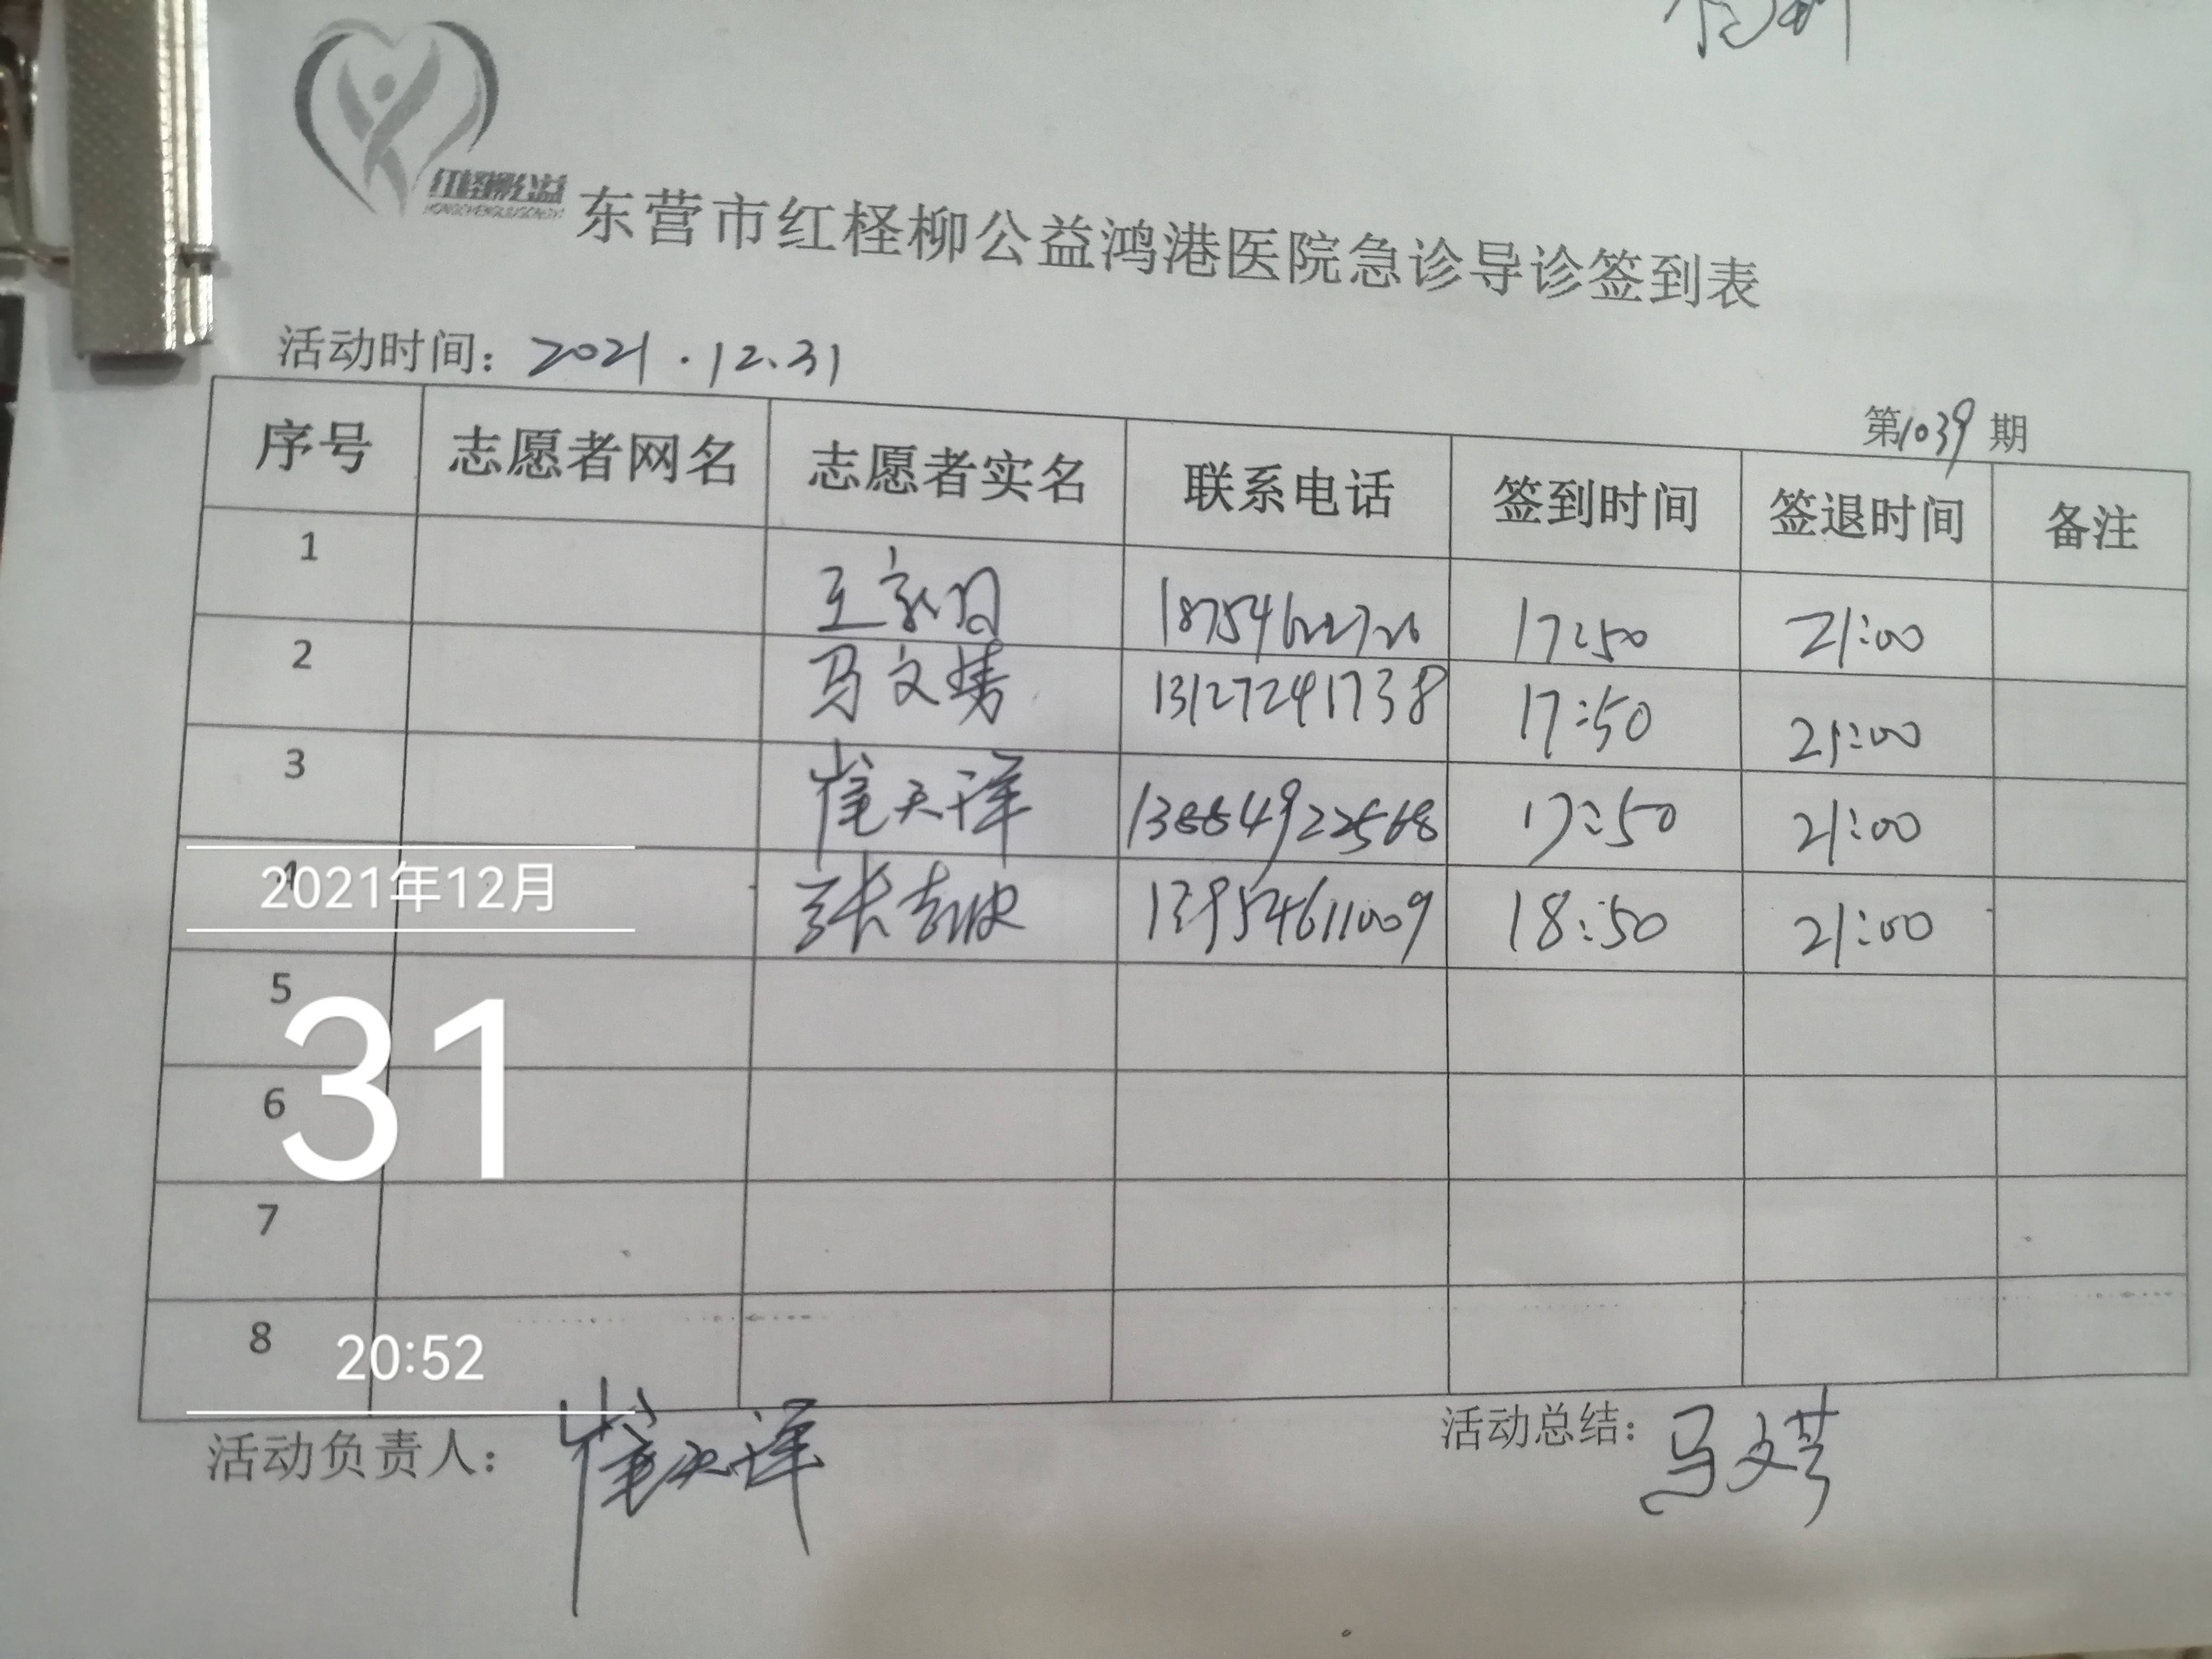 红柽柳公益
东营市红柽柳公益鸿港医院急诊导诊签到表
活动时间：2021.12.31
第1039期
序号 志愿者网名 志愿者实名 联系电话 签到时间 签退时间 备注
1 17:50 21:00
2 马文 13127241738 17:50 21:00
3 崔天洋 13884922568 17:50 21:00
4 张 13954611009 18:50 21:00
5
6
7
8
2021年12月
31
20:52
活动负责人：崔天洋
活动总结：马文